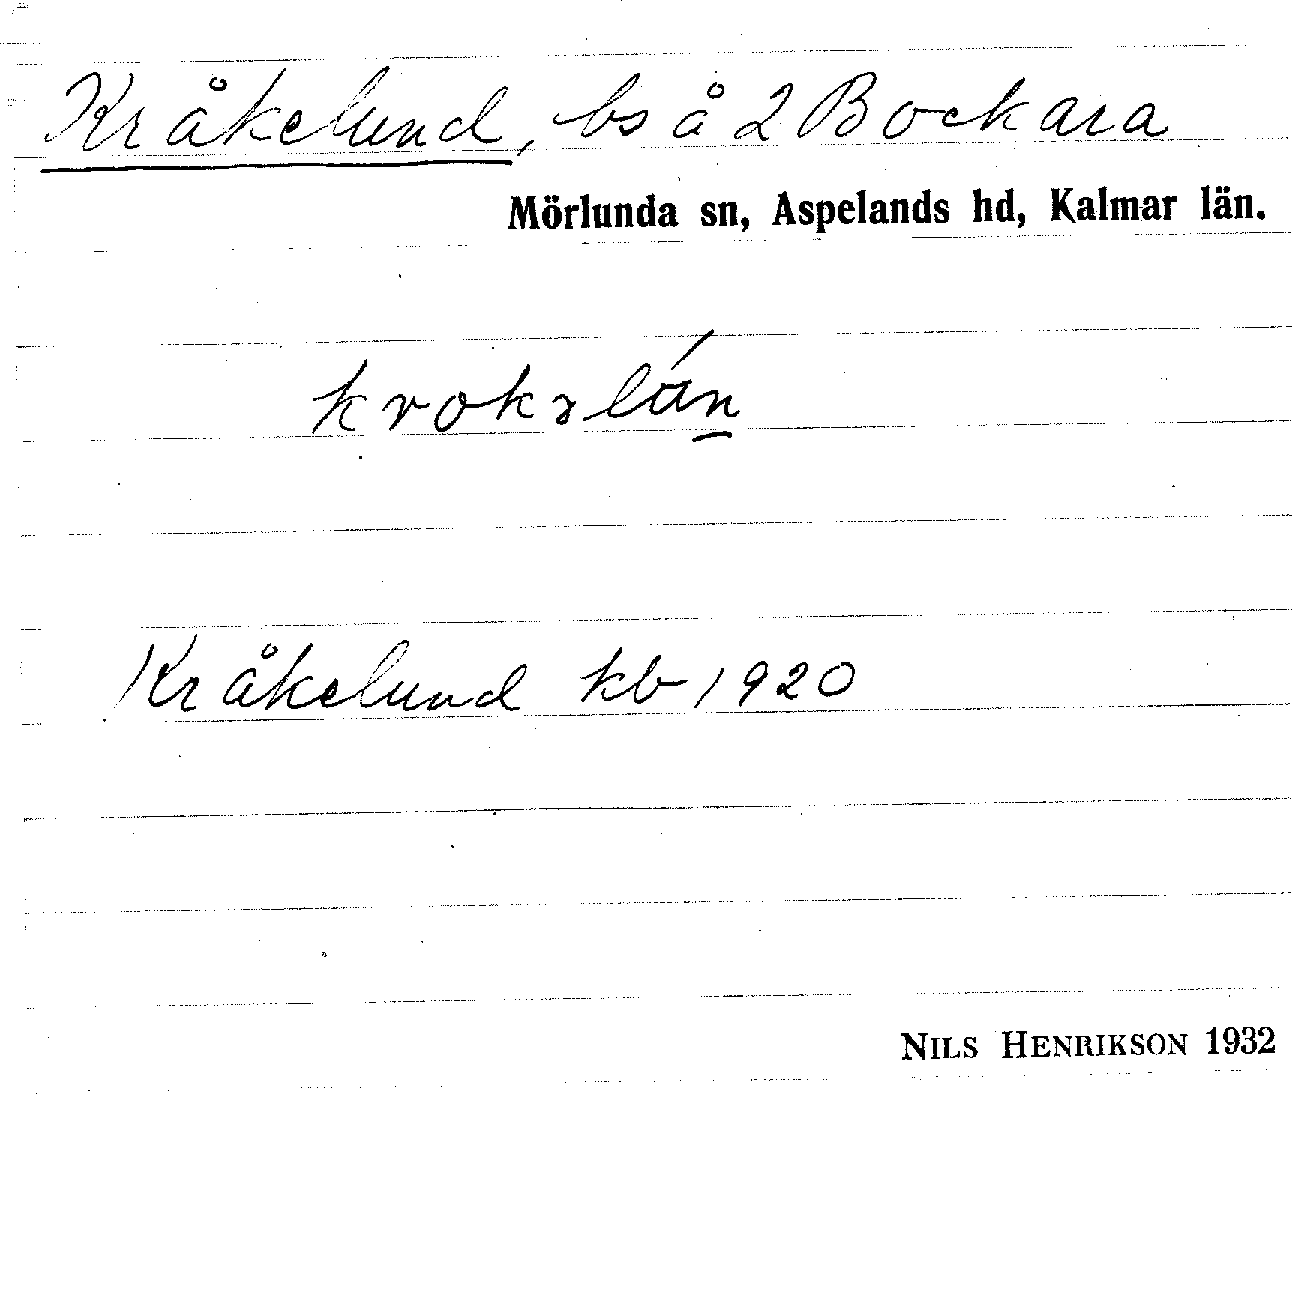 Kråkelund, bs å 2 Bockara
Mörlunda sn, Aspelands hd, Kalmar län.
Kråkelund kb 1920
NILS HENRIKSON 1932